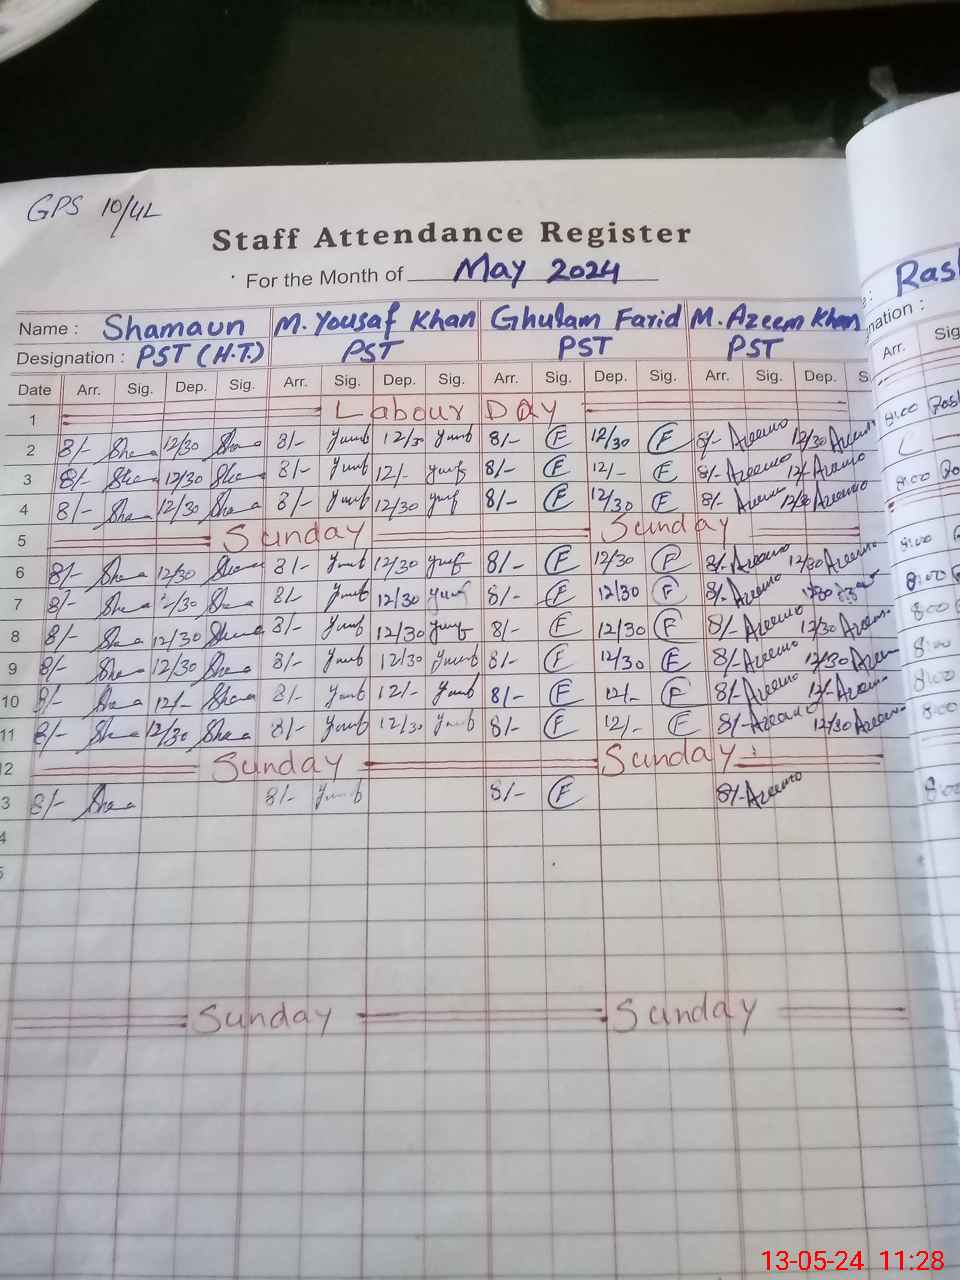 GPS 10/4L
Staff Attendance Register
For the Month of May 2024
Name : Shamaun M. Yousaf Khan Ghulam Farid M. Azeem Khan
Designation : PST (H.T.) PST PST PST
Date Arr. Sig. Dep. Sig. Arr. Sig. Dep. Sig. Arr. Sig. Dep. Sig. Arr. Sig. Dep. S
1 Labour Day
2 8/- Sha 12/30 Sha 8/- 12/30 8/- F 12/30 F 8/- Azeem 12/30 Azeem
3 8/- Sha 12/30 Sha 8/- 12/- 8/- F 12/- F 8/- Azeem 12/- Azeem
4 8/- Sha 12/30 Sha 8/- 12/30 8/- F 12/30 F 8/- Azeem 12/30 Azeem
5 Sunday Sunday
6 8/- Sha 12/30 Sha 8/- 12/30 8/- F 12/30 F 8/- Azeem 12/30 Azeem
7 8/- Sha 12/30 Sha 8/- 12/30 8/- F 12/30 F 8/- Azeem 12/30
8 8/- Sha 12/30 Sha 8/- 12/30 8/- F 12/30 F 8/- Azeem 12/30 Azeem
9 8/- Sha 12/30 Sha 8/- 12/30 8/- F 12/30 F 8/- Azeem 12/30 Azeem
10 8/- Sha 12/- Sha 8/- 12/- 8/- F 12/- F 8/- Azeem 12/- Azeem
11 8/- Sha 12/30 Sha 8/- 12/30 8/- F 12/- F 8/- Azeem 12/30 Azeem
12 Sunday Sunday
3 8/- Sha 8/- 8/- F 8/- Azeem
4
5
Sunday Sunday
Ras
nation :
Arr. Sig
8:00
C
8:00
8:00
8:00
8:00
8:00
8:00
8:00
8:00
13-05-24 11:28